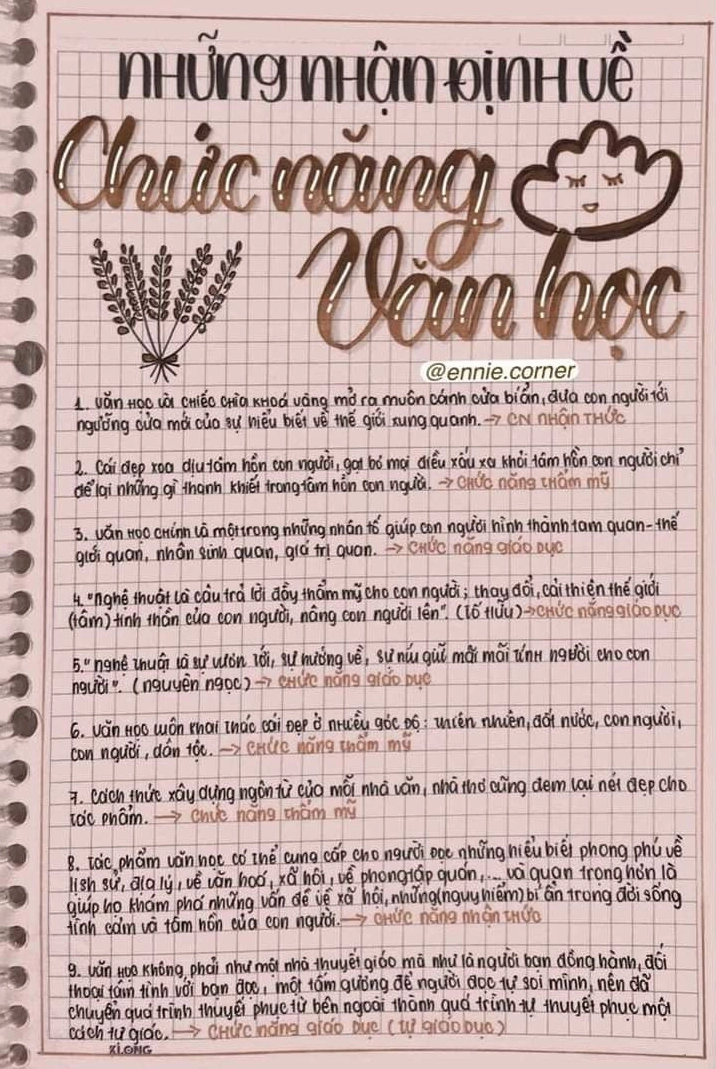 NHỮNG NHẬN ĐỊNH VỀ
Chức năng
Văn học
@ennie.corner
1. Văn học là chiếc chìa khoá vàng mở ra muôn cánh cửa bí ẩn, đưa con người tới
ngưỡng cửa mới của sự hiểu biết về thế giới xung quanh. → CN NHẬN THỨC
2. Cái đẹp xoa dịu tâm hồn con người, gạt bỏ mọi điều xấu xa khỏi tâm hồn con người chỉ
để lại những gì thanh khiết trong tâm hồn con người. → Chức năng thẩm mỹ
3. Văn học chính là một trong những nhân tố giúp con người hình thành tam quan - thế
giới quan, nhân sinh quan, giá trị quan. → Chức năng giáo dục
4. "Nghệ thuật là câu trả lời đầy thẩm mỹ cho con người; thay đổi, cải thiện thế giới
(tâm) tinh thần của con người, nâng con người lên". (Tố Hữu) → Chức năng giáo dục
5. "Nghệ thuật là sự vươn tới, sự hướng về, sự níu giữ mãi mãi tính người cho con
người". (Nguyên Ngọc) → Chức năng giáo dục
6. Văn học luôn khai thác cái đẹp ở nhiều góc độ: thiên nhiên, đất nước, con người,
con người, dân tộc. → Chức năng thẩm mỹ
7. Cách thức xây dựng ngôn từ của mỗi nhà văn, nhà thơ cũng đem lại nét đẹp cho
tác phẩm. → Chức năng thẩm mỹ
8. Tác phẩm văn học có thể cung cấp cho người đọc những hiểu biết phong phú về
lịch sử, địa lý, về văn hoá, xã hội, về phong tập quán,... và quan trọng hơn là
giúp họ khám phá những vấn đề về xã hội, những (nguy hiểm) bí ẩn trong đời sống
tình cảm và tâm hồn của con người. → Chức năng nhận thức
9. Văn học không phải như một nhà thuyết giáo mà như là người bạn đồng hành, đối
thoại tâm tình với bạn đọc, một tấm gương để người đọc tự soi mình, nên đã
chuyển quá trình thuyết phục từ bên ngoài thành quá trình tự thuyết phục một
cách tự giác. → Chức năng giáo dục (tự giáo dục)